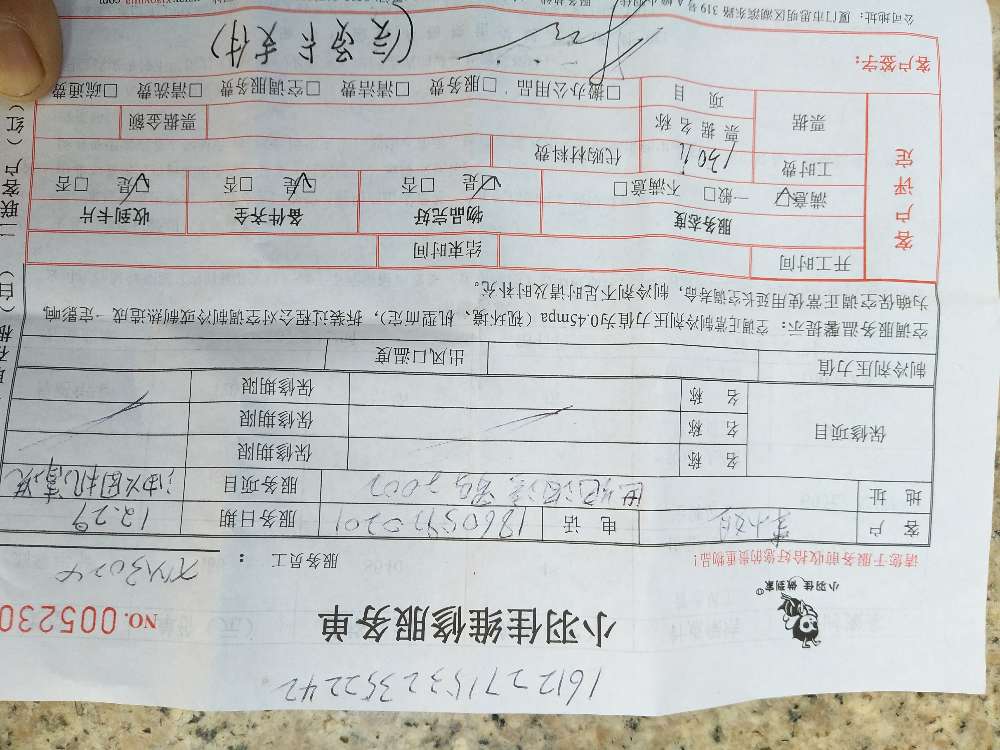 1612271532352242
小羽佳维修服务单
NO. 005230
小羽佳 做到家
请您于服务前收拾好您的贵重物品!
服务员工 : XM3024
客 户 电 话 18605920201 服务日期 12.29
地 址 服务项目 油烟机清洗
保修项目 名 称 保修期限
名 称 保修期限
名 称 保修期限
制冷剂压力值 出风口温度
空调服务温馨提示：空调正常制冷剂压力值为0.45mpa（视环境、机型而定），拆装过程会对空调制冷或制热造成一定影响，
为确保空调正常使用延长空调寿命，制冷剂不足时请及时补充。
客户评定
开工时间 结束时间
服务态度 物品完好 备件齐全 收到卡片
满意☑ 一般□ 不满意□ ☑是 □否 ☑是 □否 ☑是 □否
工时费 130元 代购材料费
票据 票据名称 票据金额
项 目 □搬办公用品 □服务费 □清洁费 □空调服务费 □清洗费 □疏通费
客户签字：
公司地址：厦门市思明区湖滨东路319号A幢
(白) 二联客户 (红)